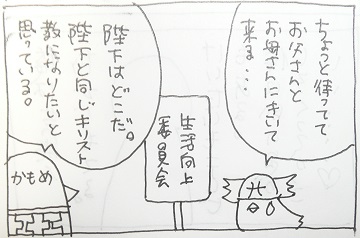 ちょっと待ってて
お父さんと
お母さんにきいて
来る…
生活向上
委員会
陛下はどこだ。
陛下と同じキリスト
教になりたいと
思っている。
かもめ